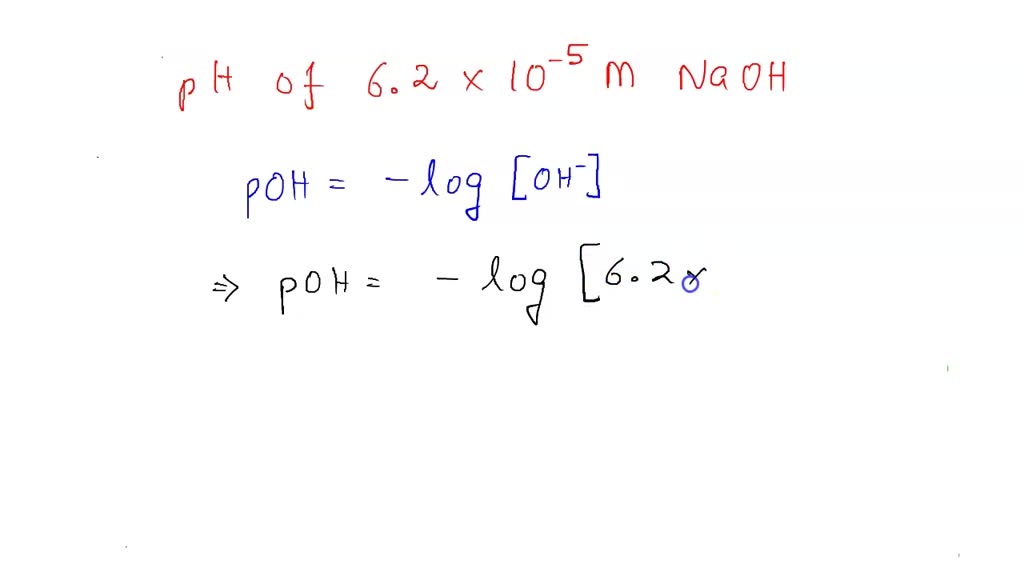 pH of 6.2 x 10⁻⁵ M NaOH
pOH = - log [OH⁻]
⇒ pOH = - log [6.2 x